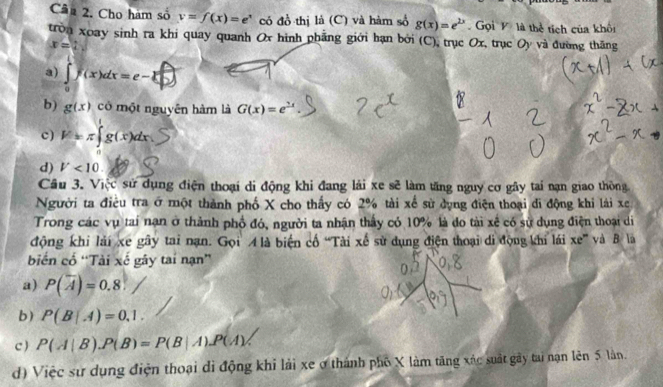 Câu 2. Cho hàm số y = f(x) = e^x có đồ thị là (C) và hàm số g(x) = e^{2x}. Gọi V là thể tích của khối
tròn xoay sinh ra khi quay quanh Ox hình phẳng giới hạn bởi (C), trục Ox, trục Oy và đường thẳng
x = 1.
(x+1) + (x
a) ∫_0^1 f(x)dx = e -
b) g(x) có một nguyên hàm là G(x) = e^{2x}. S 2e^x
-1 2 x^2 - 2x +
c) V = π∫_0^1 g(x)dx. S
0 0 x^2 - x
d) V < 10. S
Câu 3. Việc sử dụng điện thoại di động khi đang lái xe sẽ làm tăng nguy cơ gây tai nạn giao thông.
Người ta điều tra ở một thành phố X cho thấy có 2% tài xế sử dụng điện thoại di động khi lái xe
Trong các vụ tai nạn ở thành phố đó, người ta nhận thấy có 10% là do tài xế có sử dụng điện thoại di
động khi lái xe gây tai nạn. Gọi A là biến cố “Tài xế sử dụng điện thoại di động khi lái xe” và B là
biến cố “Tài xế gây tai nạn”
0,8
a) P(A̅) = 0,8
b) P(B | A) = 0,1.
c) P(A | B).P(B) = P(B | A).P(A).
d) Việc sử dụng điện thoại di động khi lái xe ở thành phố X làm tăng xác suất gây tai nạn lên 5 lần.